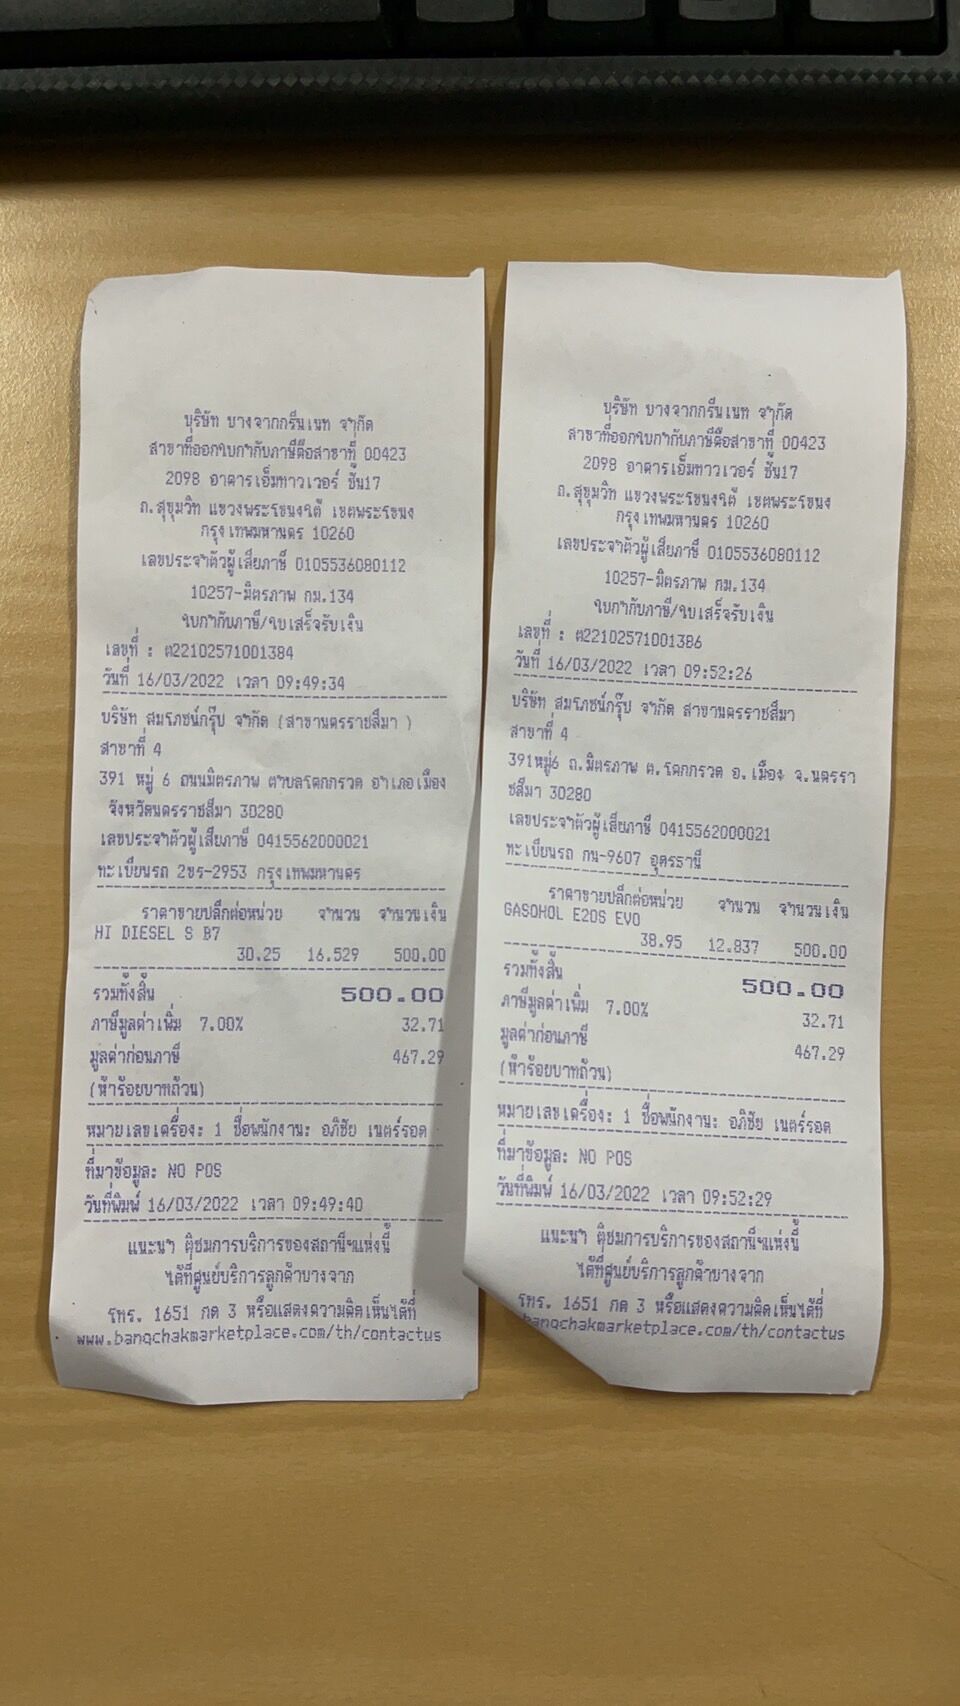 บริษัท บางจากกรีนเนท จำกัด
สาขาที่ออกใบกำกับภาษีคือสาขาที่ 00423
2098 อาคารเอ็มทาวเวอร์ ชั้น17
ถ.สุขุมวิท แขวงพระโขนงใต้ เขตพระโขนง
กรุงเทพมหานคร 10260
เลขประจำตัวผู้เสียภาษี 0105536080112
10257-มิตรภาพ กม.134
ใบกำกับภาษี/ใบเสร็จรับเงิน
เลขที่ : ต22102571001384
วันที่ 16/03/2022 เวลา 09:49:34
บริษัท สมโภชน์กรุ๊ป จำกัด (สาขานครราชสีมา )
สาขาที่ 4
391 หมู่ 6 ถนนมิตรภาพ ตำบลโคกกรวด อำเภอเมือง
จังหวัดนครราชสีมา 30280
เลขประจำตัวผู้เสียภาษี 0415562000021
ทะเบียนรถ 2ขร-2953 กรุงเทพมหานคร
ราคาขายปลีกต่อหน่วย จำนวน จำนวนเงิน
HI DIESEL S B7
30.25 16.529 500.00
รวมทั้งสิ้น 500.00
ภาษีมูลค่าเพิ่ม 7.00% 32.71
มูลค่าก่อนภาษี 467.29
(ห้าร้อยบาทถ้วน)
หมายเลขเครื่อง: 1 ชื่อพนักงาน: อภิชัย เนตร์รอด
ที่มาข้อมูล: NO POS
วันที่พิมพ์ 16/03/2022 เวลา 09:49:40
แนะนำ ติชมการบริการของสถานีฯแห่งนี้
ได้ที่ศูนย์บริการลูกค้าบางจาก
โทร. 1651 กด 3 หรือแสดงความคิดเห็นได้ที่
www.bangchakmarketplace.com/th/contactus
บริษัท บางจากกรีนเนท จำกัด
สาขาที่ออกใบกำกับภาษีคือสาขาที่ 00423
2098 อาคารเอ็มทาวเวอร์ ชั้น17
ถ.สุขุมวิท แขวงพระโขนงใต้ เขตพระโขนง
กรุงเทพมหานคร 10260
เลขประจำตัวผู้เสียภาษี 0105536080112
10257-มิตรภาพ กม.134
ใบกำกับภาษี/ใบเสร็จรับเงิน
เลขที่ : ต22102571001386
วันที่ 16/03/2022 เวลา 09:52:26
บริษัท สมโภชน์กรุ๊ป จำกัด สาขานครราชสีมา
สาขาที่ 4
391หมู่6 ถ.มิตรภาพ ต.โคกกรวด อ.เมือง จ.นครรา
ชสีมา 30280
เลขประจำตัวผู้เสียภาษี 0415562000021
ทะเบียนรถ กน-9607 อุดรธานี
ราคาขายปลีกต่อหน่วย จำนวน จำนวนเงิน
GASOHOL E20S EVO
38.95 12.837 500.00
รวมทั้งสิ้น 500.00
ภาษีมูลค่าเพิ่ม 7.00% 32.71
มูลค่าก่อนภาษี 467.29
(ห้าร้อยบาทถ้วน)
หมายเลขเครื่อง: 1 ชื่อพนักงาน: อภิชัย เนตร์รอด
ที่มาข้อมูล: NO POS
วันที่พิมพ์ 16/03/2022 เวลา 09:52:29
แนะนำ ติชมการบริการของสถานีฯแห่งนี้
ได้ที่ศูนย์บริการลูกค้าบางจาก
โทร. 1651 กด 3 หรือแสดงความคิดเห็นได้ที่
bangchakmarketplace.com/th/contactus